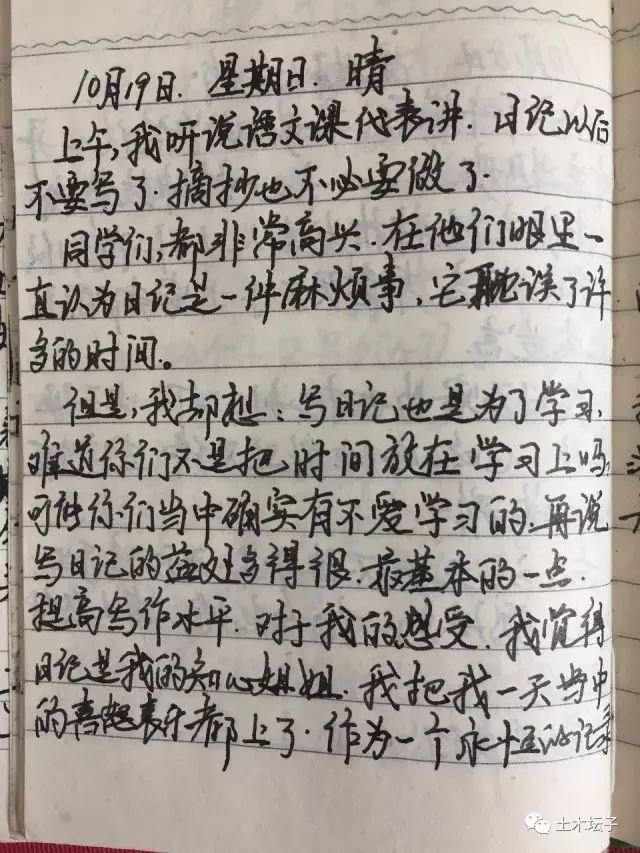 10月19日. 星期日. 晴
上午,我听说语文课代表讲.日记以后
不要写了.摘抄也不必要做了.
同学们,都非常高兴.在他们眼里一
直认为日记是一件麻烦事,它耽误了许
多的时间。
但是,我却想:写日记也是为了学习,
难道你们不是把时间放在学习上吗,
可能你们当中确实有不爱学习的.再说
写日记的益处多得很.最基本的一点.
提高写作水平.对于我的感受.我觉得
日记是我的知心姐姐.我把我一天当中
的喜怒哀乐都上了.作为一个永恒的记录
土木坛子